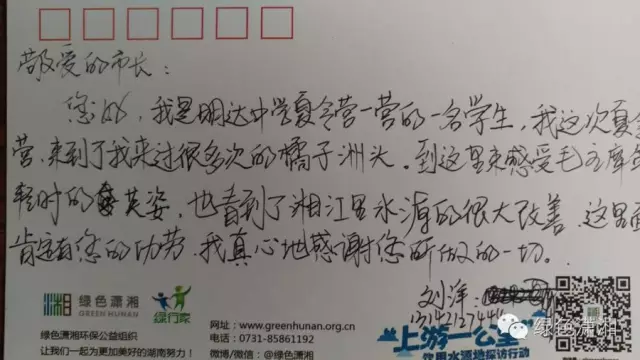 敬爱的市长：
您好，我是明达中学夏令营一营的一名学生，我这次夏令
营，来到了我来过很多次的橘子洲头。到这里来感受毛主席年
轻时的英姿，也看到了湘江里水源的很大改善，这里面
肯定有您的功劳，我真心地感谢您所做的一切。
刘洋
绿色潇湘
GREEN HUNAN
绿行家
绿色潇湘环保公益组织
让我们一起为更加美好的湖南努力！
网址：www.greenhunan.org.cn
电话：0731-85861192
微博/微信：@绿色潇湘
上游一公里
饮用水源地探访行动
绿色潇湘